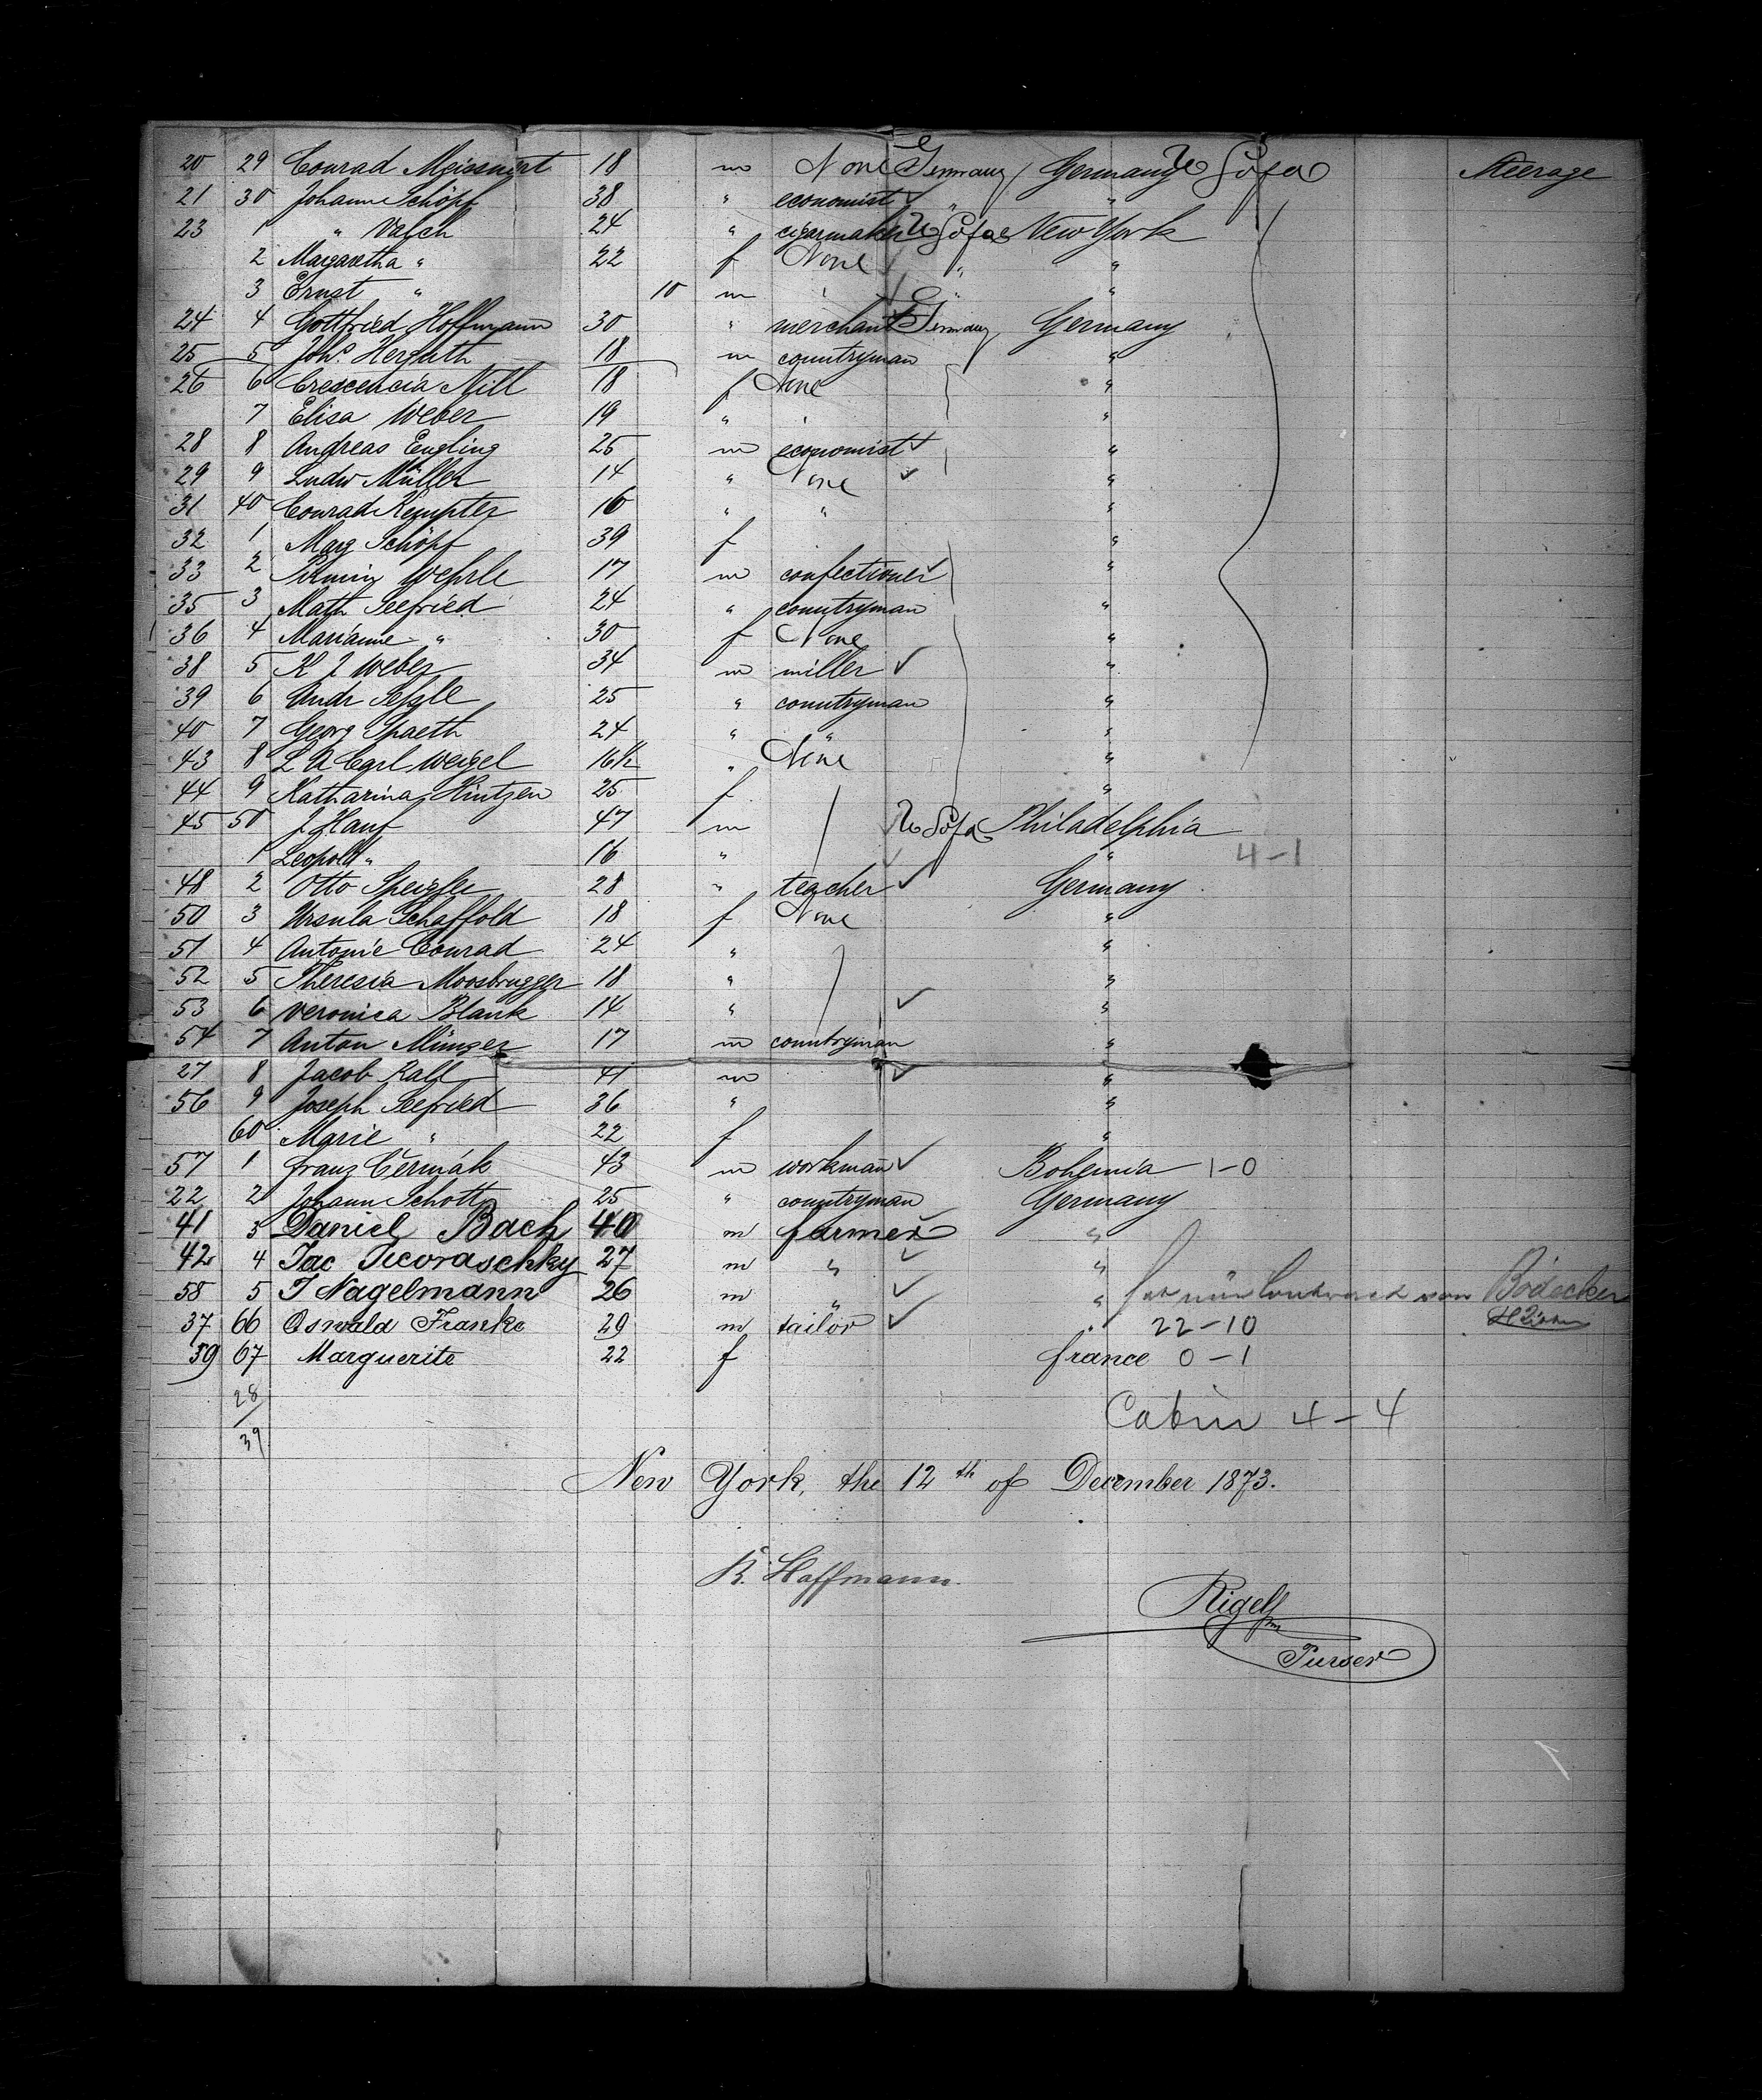 20 29 Conrad Meissnert 18 m None Germany Germany U S of a Steerage
21 30 Johann Schöpf 38 " economist " "
23 1 " Valch 24 " cigarmaker U S of a New York
2 Margaretha " 22 f None " "
3 Ernst " 10 m " "
24 4 Gottfried Hoffmann 30 " merchant Germany Germany
25 5 Johs. Herguth 18 m countryman "
26 6 Crescencia Nill 18 f None "
7 Elisa Weber 19 " "
28 8 Andreas Engling 25 m economist "
29 9 Ludw Müller 14 " None "
31 40 Conrad Kempter 16 " " "
32 1 Marg Schöpf 39 f "
33 2 Pirmin Wehrle 17 m confectioner "
35 3 Math Seefried 24 " countryman "
36 4 Marianne " 30 f None "
38 5 K J Weber 34 m miller "
39 6 Andr 25 " countryman "
40 7 Georg Spaeth 24 " " "
43 8 L A Carl Weigel 16½ " None "
44 9 Katharina Hintzen 25 f "
45 50 J. Hauf 47 m U S of a Philadelphia
1 Leopold " 16 " " 4-1
48 2 Otto Speigler 28 " teacher Germany
50 3 Ursula Schaffold 18 f None "
51 4 Antonie Conrad 24 " "
52 5 Theresia Moosbrugger 18 " "
53 6 Veronica Blank 14 " "
54 7 Anton Münzer 17 m countryman "
27 8 Jacob Kalf 41 m "
56 9 Joseph Seefried 36 " "
60 Marie " 22 f "
57 1 Franz Čermák 43 m workman Bohemia 1-0
22 2 Johann Schott 25 " countryman Germany
41 3 Daniel Bach 40 m farmer "
42 4 Jac 27 m " "
58 5 J Nagelmann 26 m " " Bödecker
37 66 Oswald Franke 29 m tailor " 22-10
59 67 Marguerite 22 f france 0-1
28
39
Cabin 4-4
New York, the 12th of December 1873.
K. Hoffmann.
Rigell
Purser